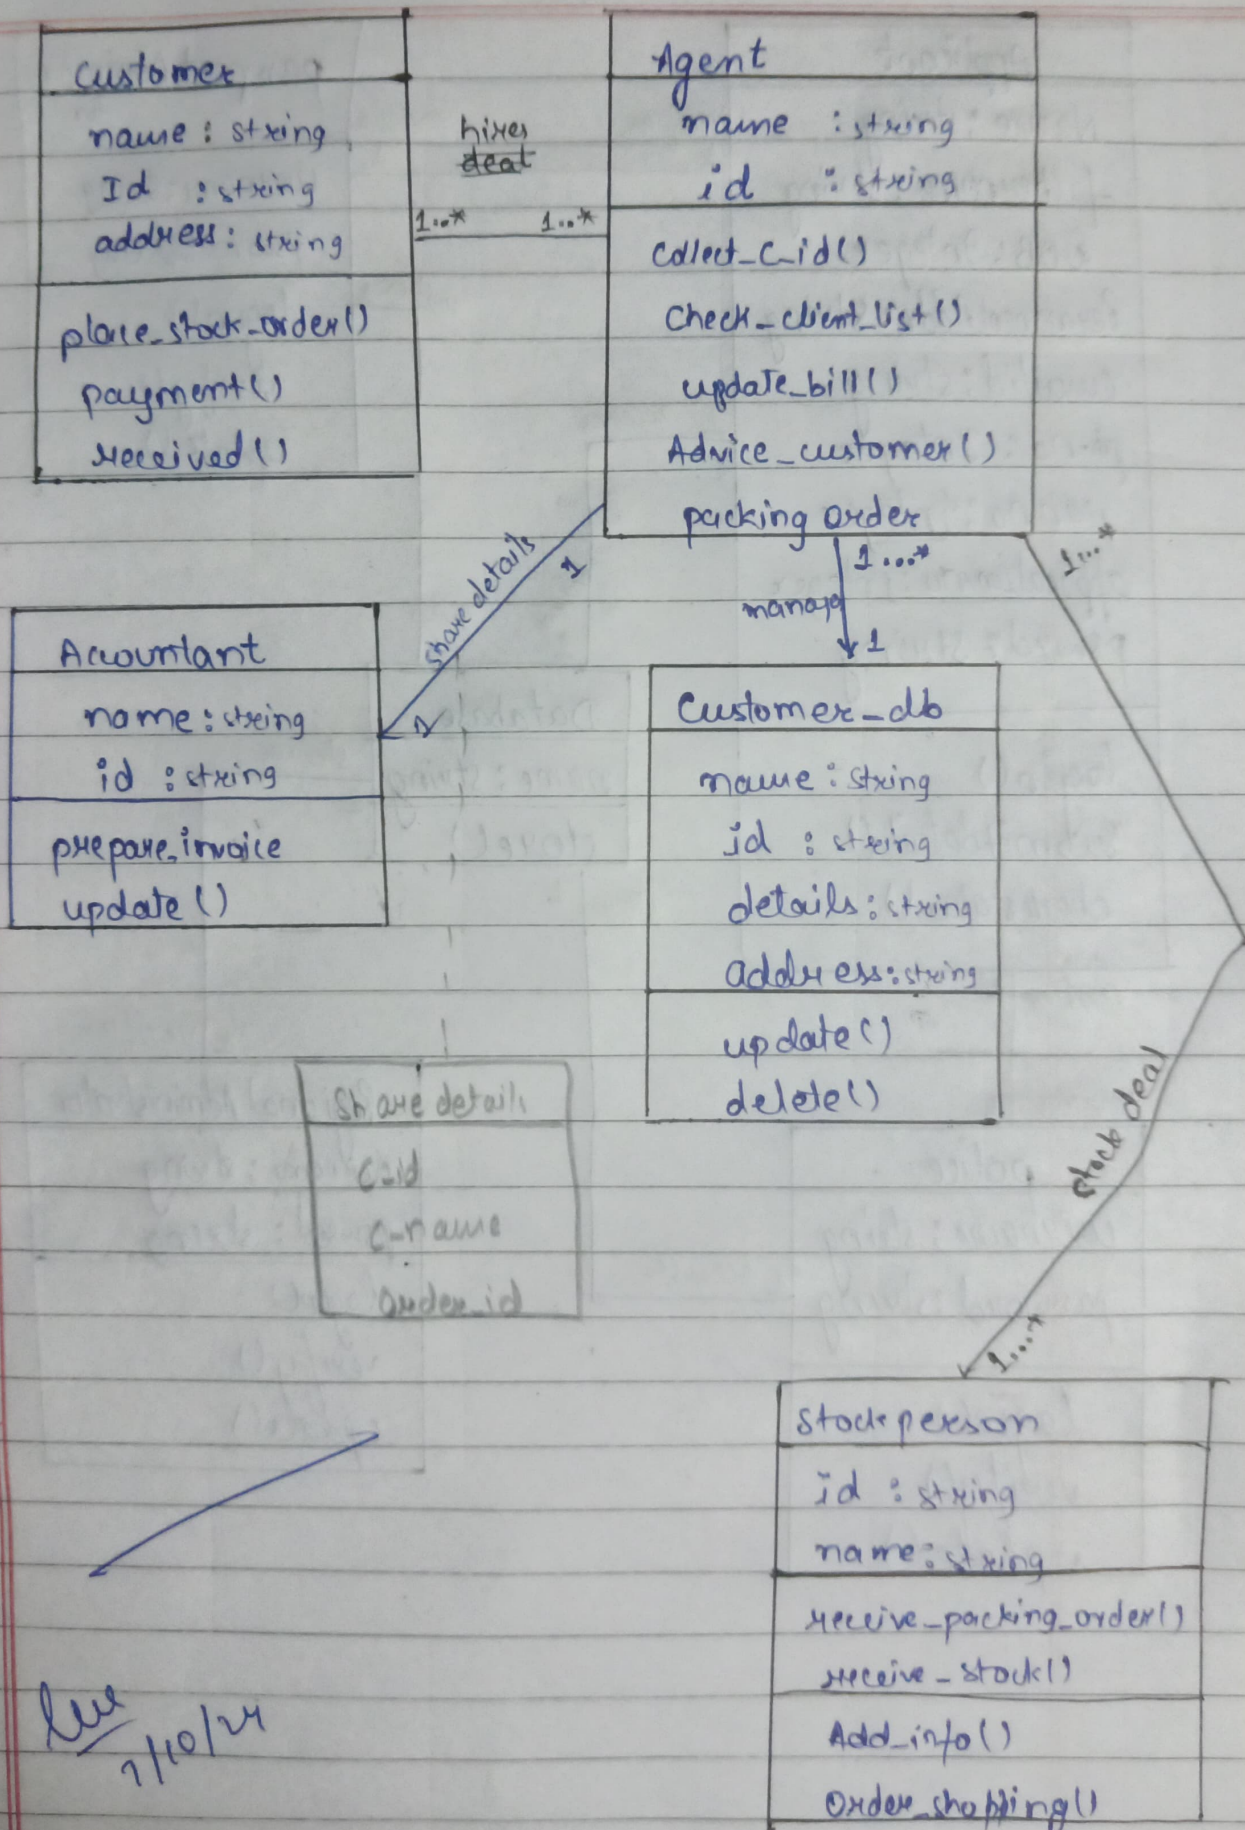 Customer
name : string
Id : string
address : string
place_stock_order()
payment()
received()
hires
deal
1..* 1..*
Agent
name : string
id : string
Collect_C_id()
Check_client_list()
update_bill()
Advice_customer()
packing order
share details
1
1
1...*
manage
1
1...*
Accountant
name : string
id : string
prepare_invoice
update()
Customer_db
name : string
id : string
details : string
address : string
update()
delete()
Share details
C_id
C-name
order_id
stock deal
1...*
Stock person
id : string
name : string
receive_packing_order()
receive_stock()
Add_info()
Order_shopping()
7/10/24